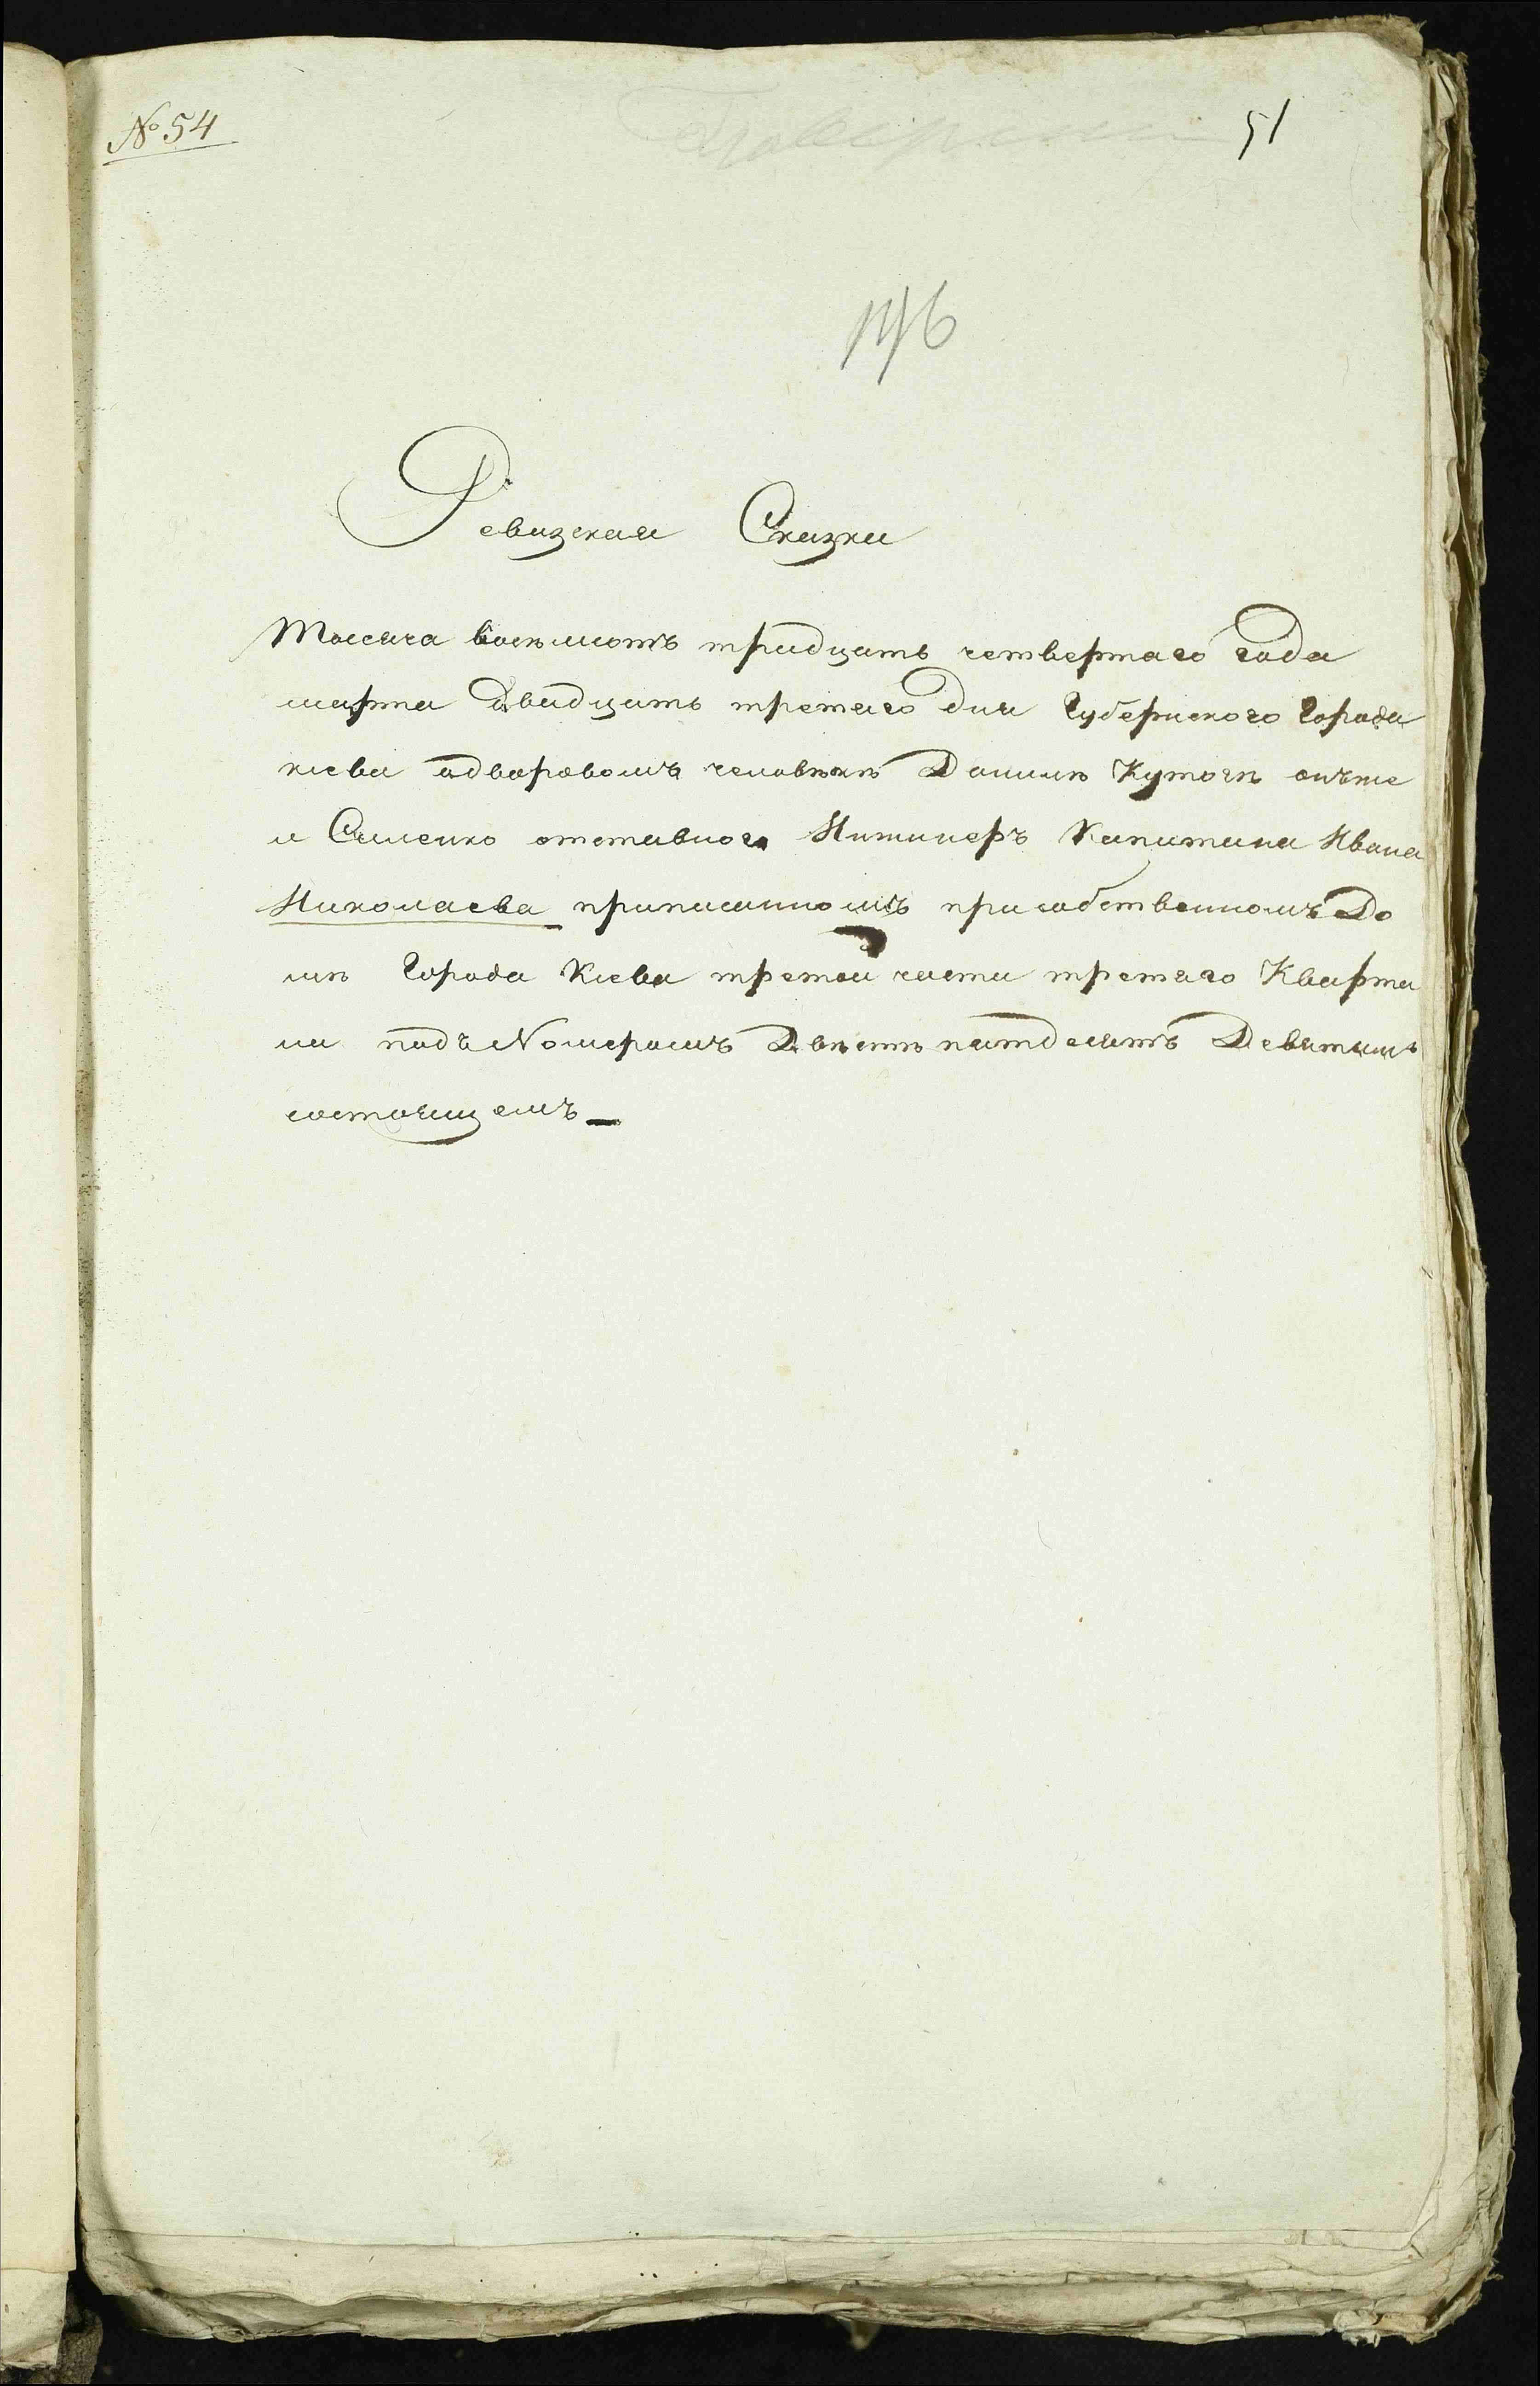 № 54
51
Ревизская Сказка
Тысяча восемсотъ тридцать четвертаго года
марта двадцать третяго дня Губернского Города
кіева одворовомъ человѣкѣ Данилѣ Кутогѣ онъже
и Саленко отставного Инжинеръ Капитана Ивана
Николаева приписанномъ присобственномъ До
мѣ Города Кіева третей части третяго Кварта
ла подъ Номеромъ Двѣсти пятдесятъ Девятымъ
состоящемъ